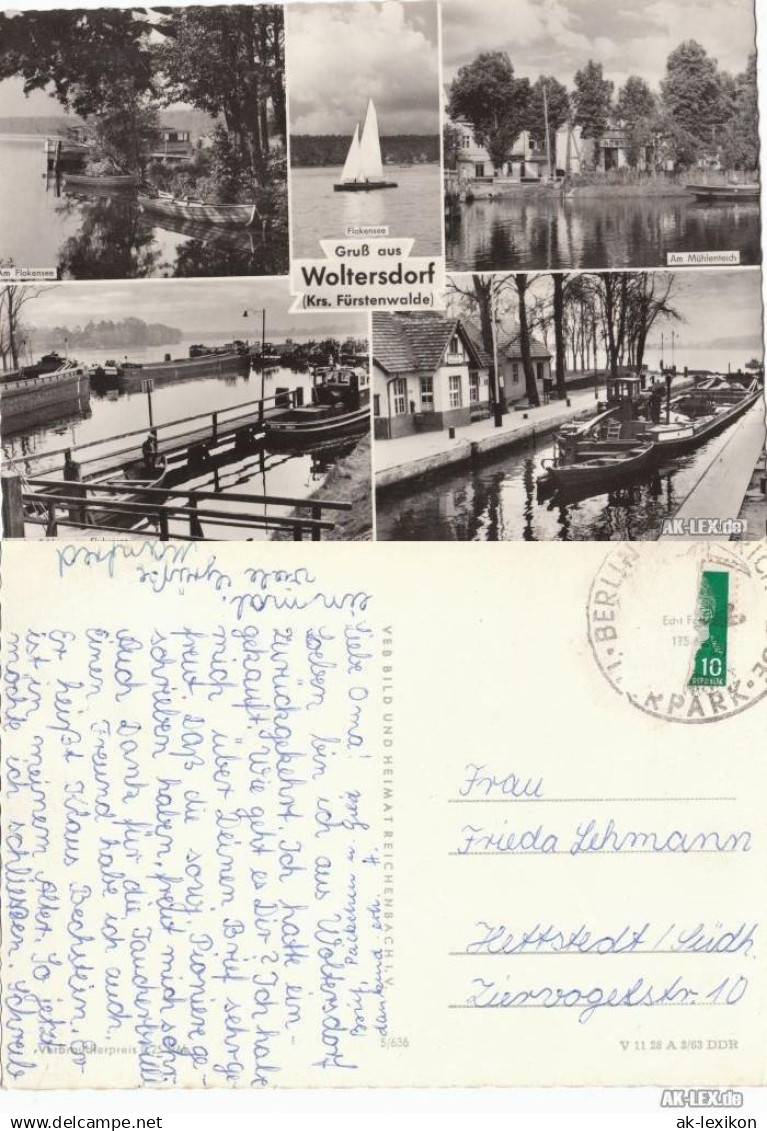 Am Flakensee
Flakensee
Gruß aus
Woltersdorf
(Krs. Fürstenwalde)
Am Mühlenteich
AK-LEX.de
Liebe Oma!
Soeben bin ich aus Woltersdorf
zurückgekehrt. Ich hatte ein
gekauft. Wie geht es Dir? Ich habe
mich über Deinen Brief sehr ge-
freut. Daß die sowj. Pioniere ge-
schrieben haben, freut mich sehr.
Auch Dank für die
Einen Freund habe ich auch.
Er heißt Klaus Bechstein. Er
ist in meinem Alter. So jetzt
möchte ich schließen. Schreibe
ein mal.
viele Grüße
Manfred
Brief, u.
dankend erh.
VEB BILD UND HEIMAT REICHENBACH I. V.
BERLIN
PARK
10
REPUBLIK
Frau
Frieda Lehmann
Hettstedt / Südh.
Ziervogelstr. 10
Verbraucherpreis
5/636
V 11 28 A 3/63 DDR
AK-LEX.de
www.delcampe.net
ak-lexikon